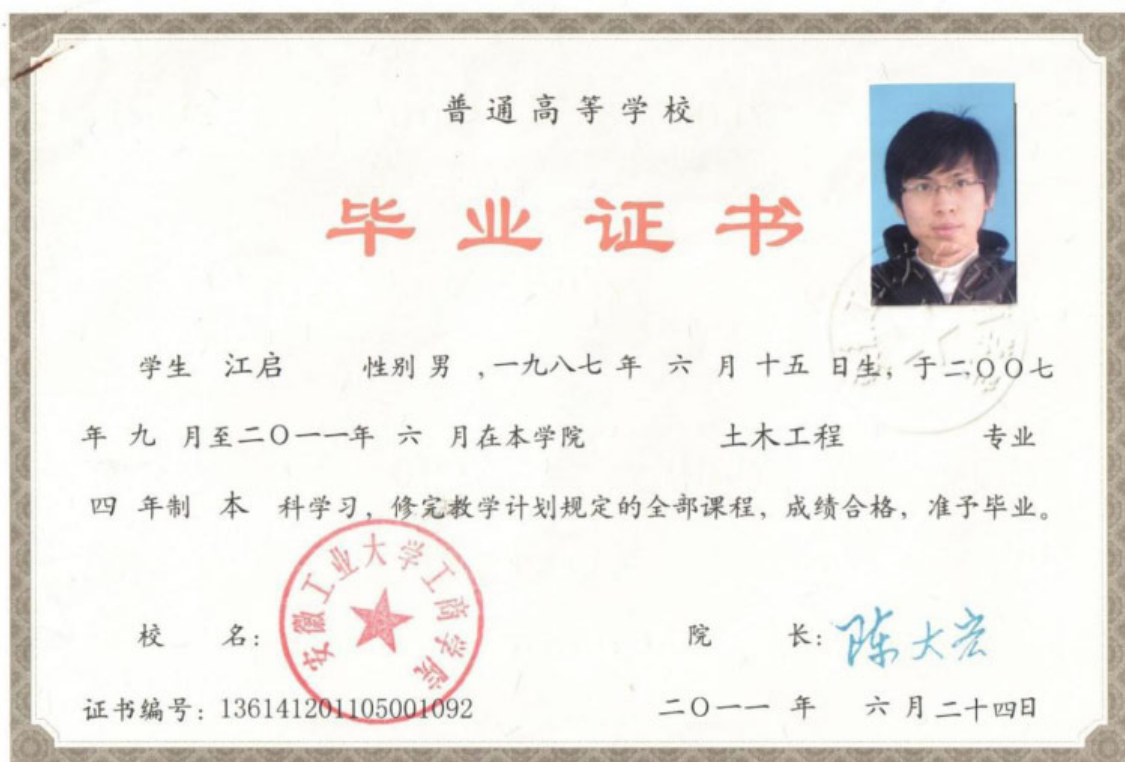 普通高等学校
毕业证书
学生 江启 性别 男 ,一九八七 年 六 月 十五 日生, 于二〇〇七
年 九 月至二〇一一年 六 月在本学院 土木工程 专业
四 年制 本 科学习, 修完教学计划规定的全部课程, 成绩合格, 准予毕业。
安徽工业大学工商学院
校 名:
院 长: 陈大宏
证书编号: 136141201105001092
二〇一一 年 六 月 二十四日